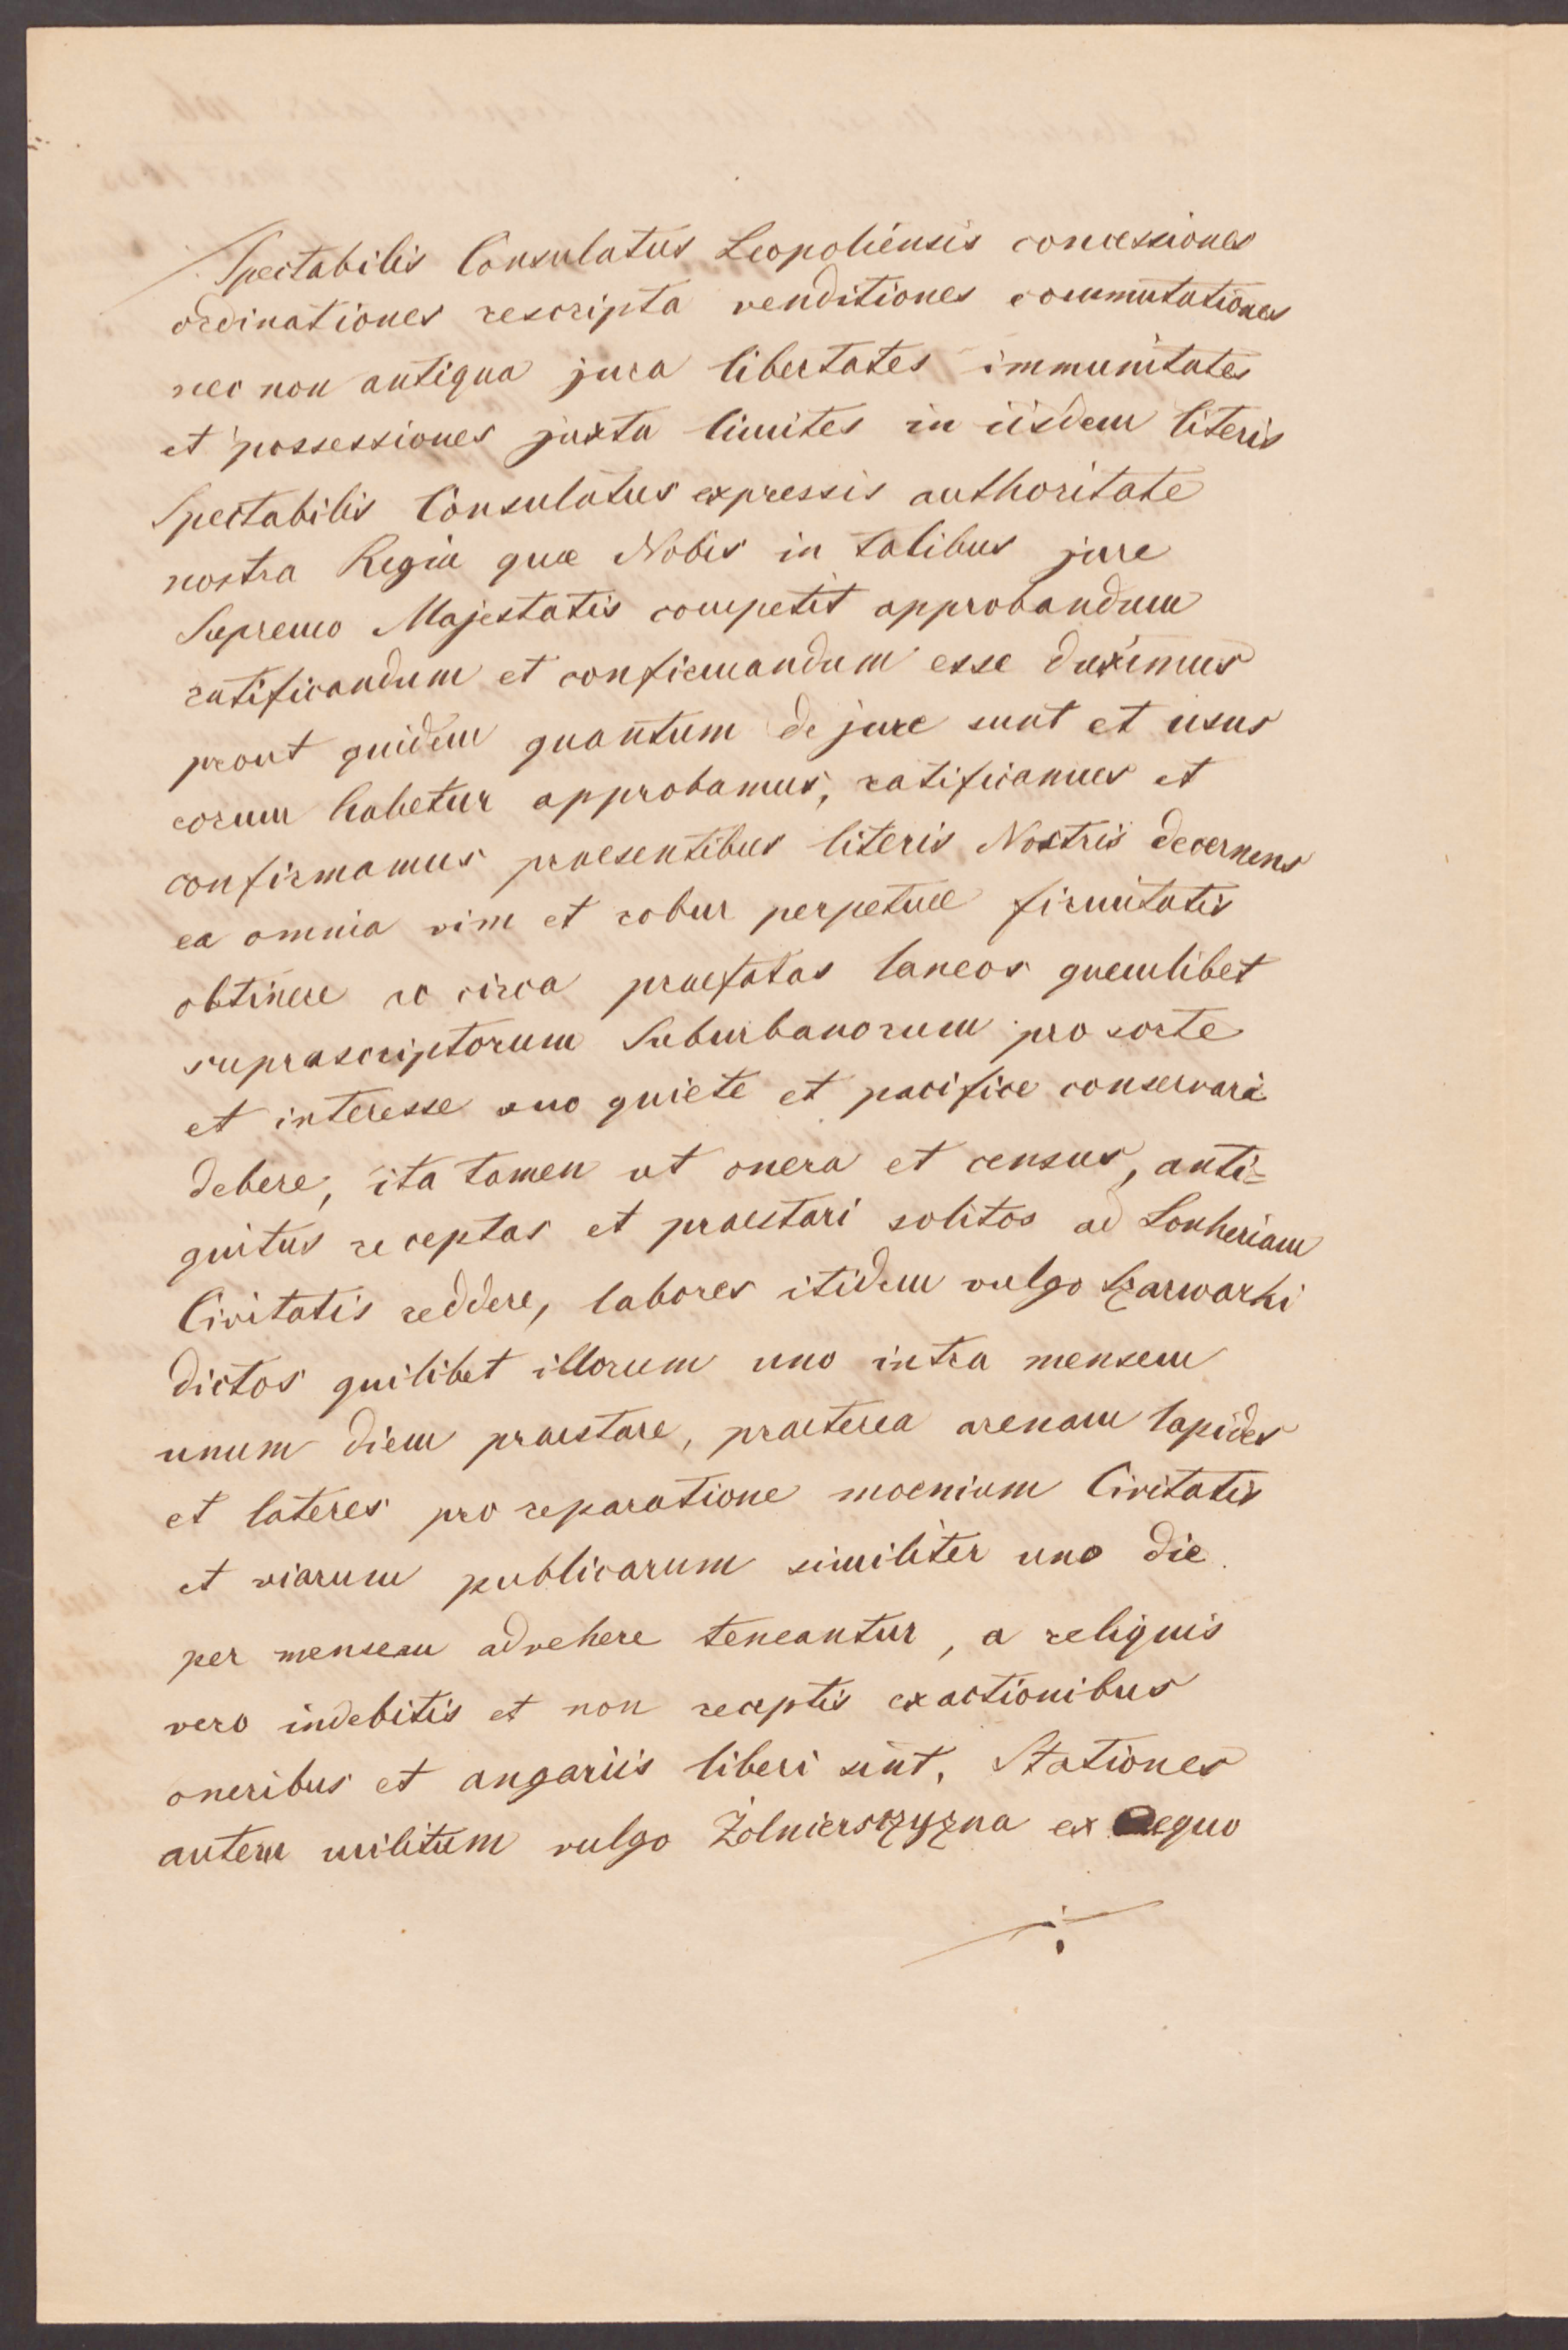 Spectabilis Consulatus Leopoliensis concessiones
ordinationes rescripta venditiones commutationes
nec non antiqua jura libertates immunitates
et possessiones juxta limites in iisdem literis
Spectabilis Consulatus expressis authoritate
nostra Regia quæ Nobis in talibus jure
Supremo Majestatis competit approbandum
ratificandum et confirmandum esse duximus
prout quidem quantum de jure sunt et usus
eorum habetur approbamus, ratificamus et
confirmamus praesentibus literis Nostris decernens
ea omnia vim et robur perpetuæ firmitatis
obtinere eo circa praefatas laneos quemlibet
suprascriptorum Suburbanorum pro sorte
et interesse suo quiete et pacifice conservari
debere, ita tamen ut onera et census, anti=
quitus receptas et praestari solitos ad Lonheriam
Civitatis reddere, labores itidem vulgo Szarwarki
dictos quilibet illorum uno intra mensem
unum diem praestare, praeterea arenam lapides
et lateres pro reparatione moenium Civitatis
et viarum publicarum similiter uno die
per mensem advehere teneantur, a reliquis
vero indebitis et non receptis exactionibus
oneribus et angariis liberi sint. Stationes
autem militum vulgo Żolnierszczyzna ex aequo